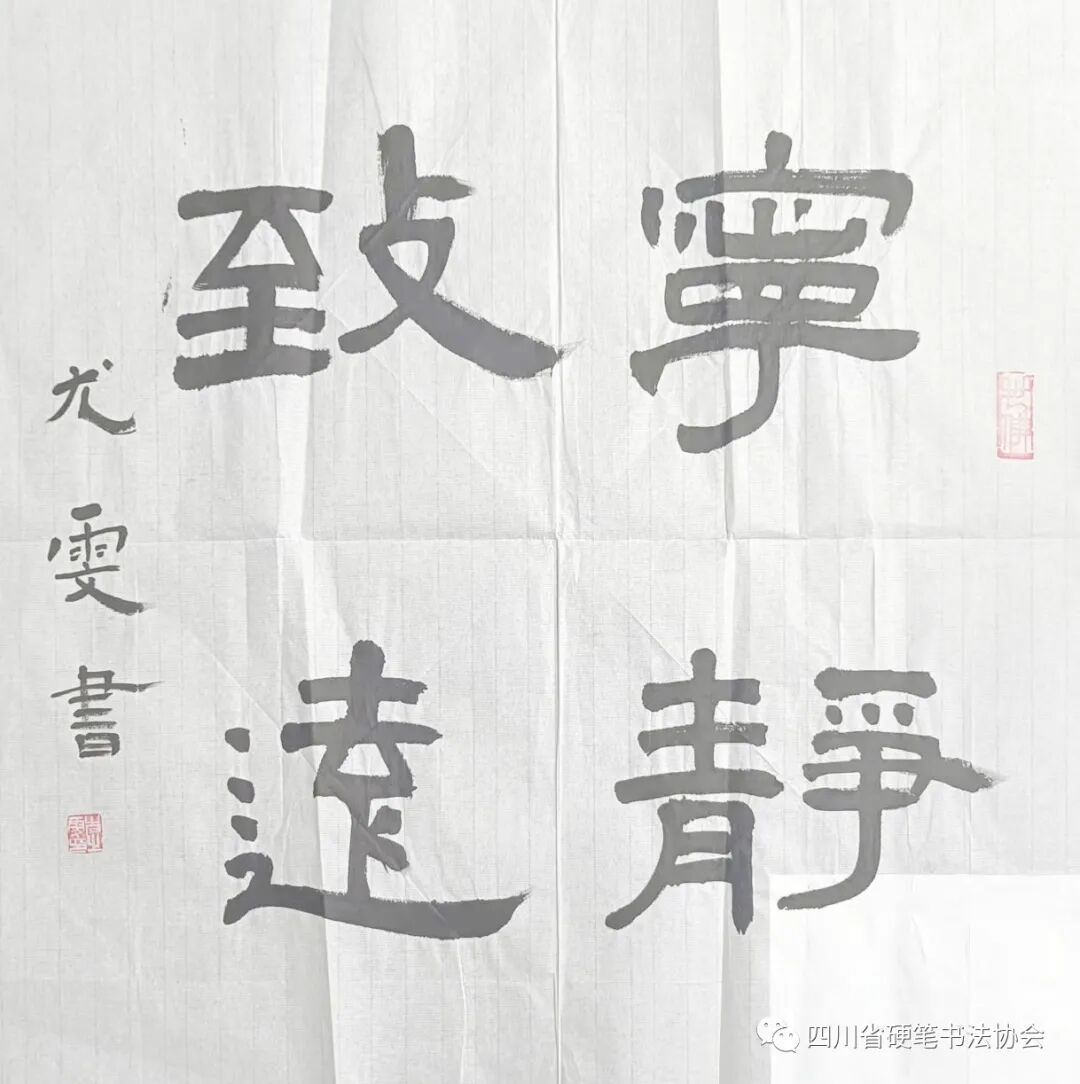 寧靜
致遠
尤雯書
四川省硬笔书法协会